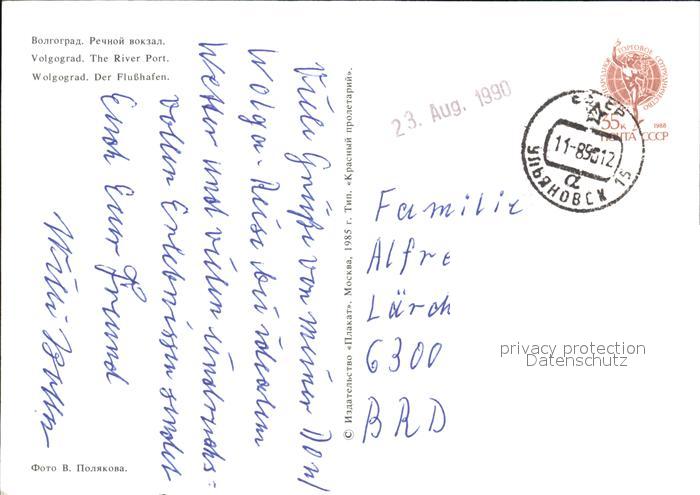 Волгоград. Речной вокзал.
Volgograd. The River Port.
Wolgograd. Der Flußhafen.
Viele Grüße von meiner Don/
Wolga-Reise bei idealem
Wetter und vielen eindrucks=
vollen Erlebnissen sendet
Euch Euer Freund
Willi
Фото В. Полякова.
© Издательство «Плакат». Москва, 1985 г. Тип. «Красный пролетарий».
23. Aug. 1990
МЕЖДУНАРОДНОЕ ТОРГОВОЕ СОТРУДНИЧЕСТВО
35к
1988
ПОЧТА СССР
СССР
11-8
12
а
УЛЬЯНОВСК 15
Familie
Alfre
Lärch
6300
BRD
privacy protection
Datenschutz